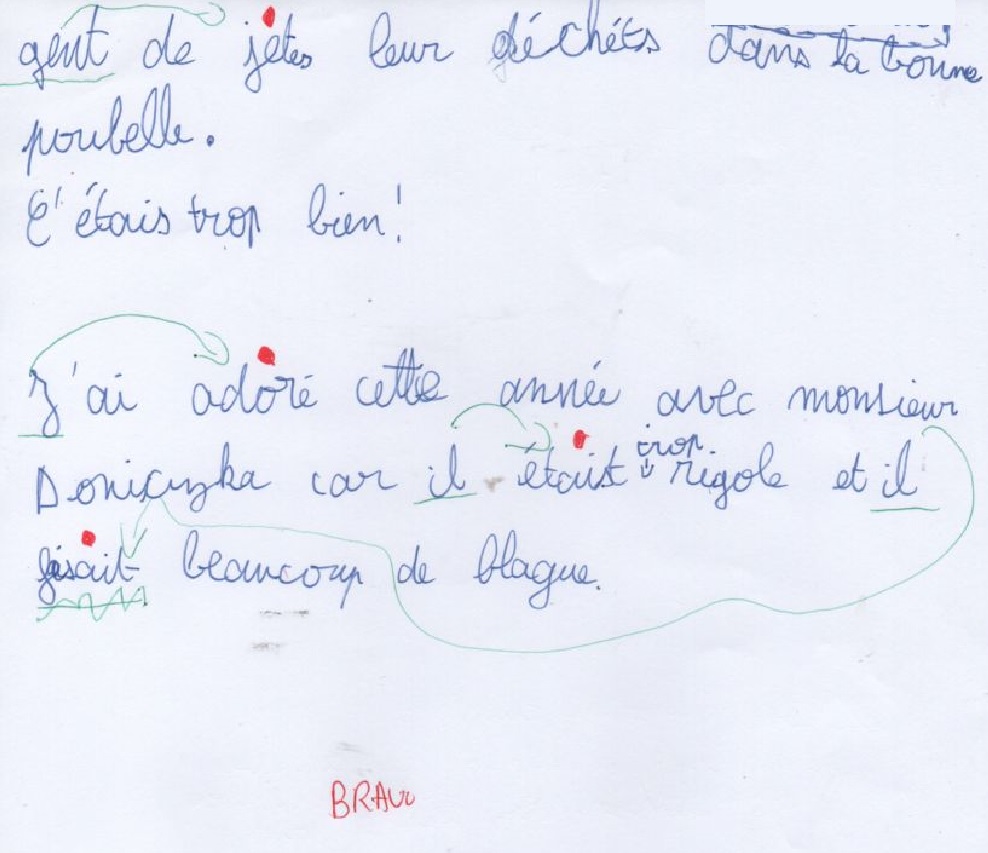 gent de jetes leur déchéts dans la bonne
poubelle.
C'étais trop bien!
J'ai adoré cette année avec monsieur
trop
Doniczka car il était rigole et il
fisait beaucoup de blague.
BRAVO